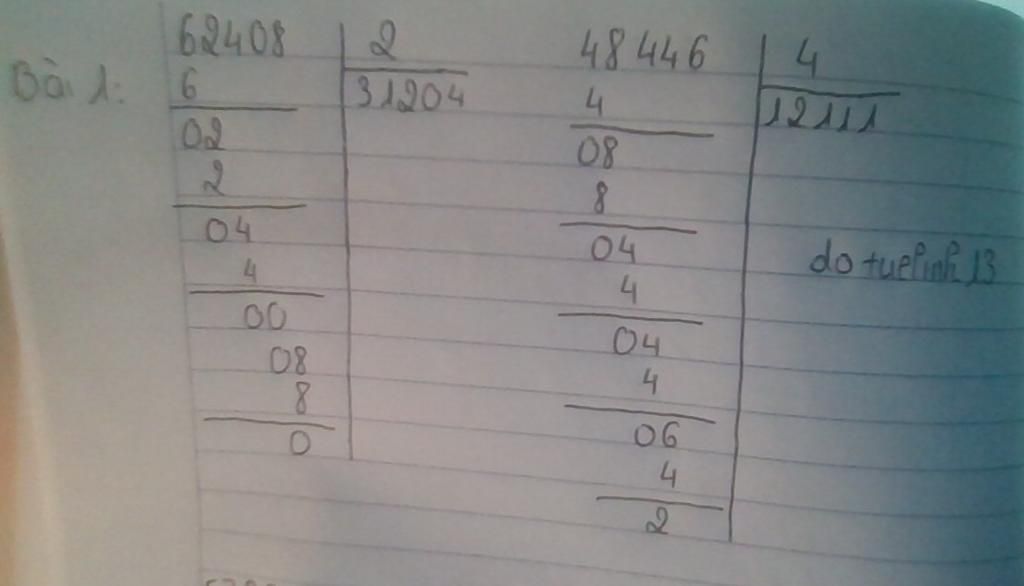 Bài 1:
62408 2
6 31204
02
2
04
4
00
08
8
0
48446 4
4 12111
08
8
04
4
04
4
06
4
2
do tuelinh 13